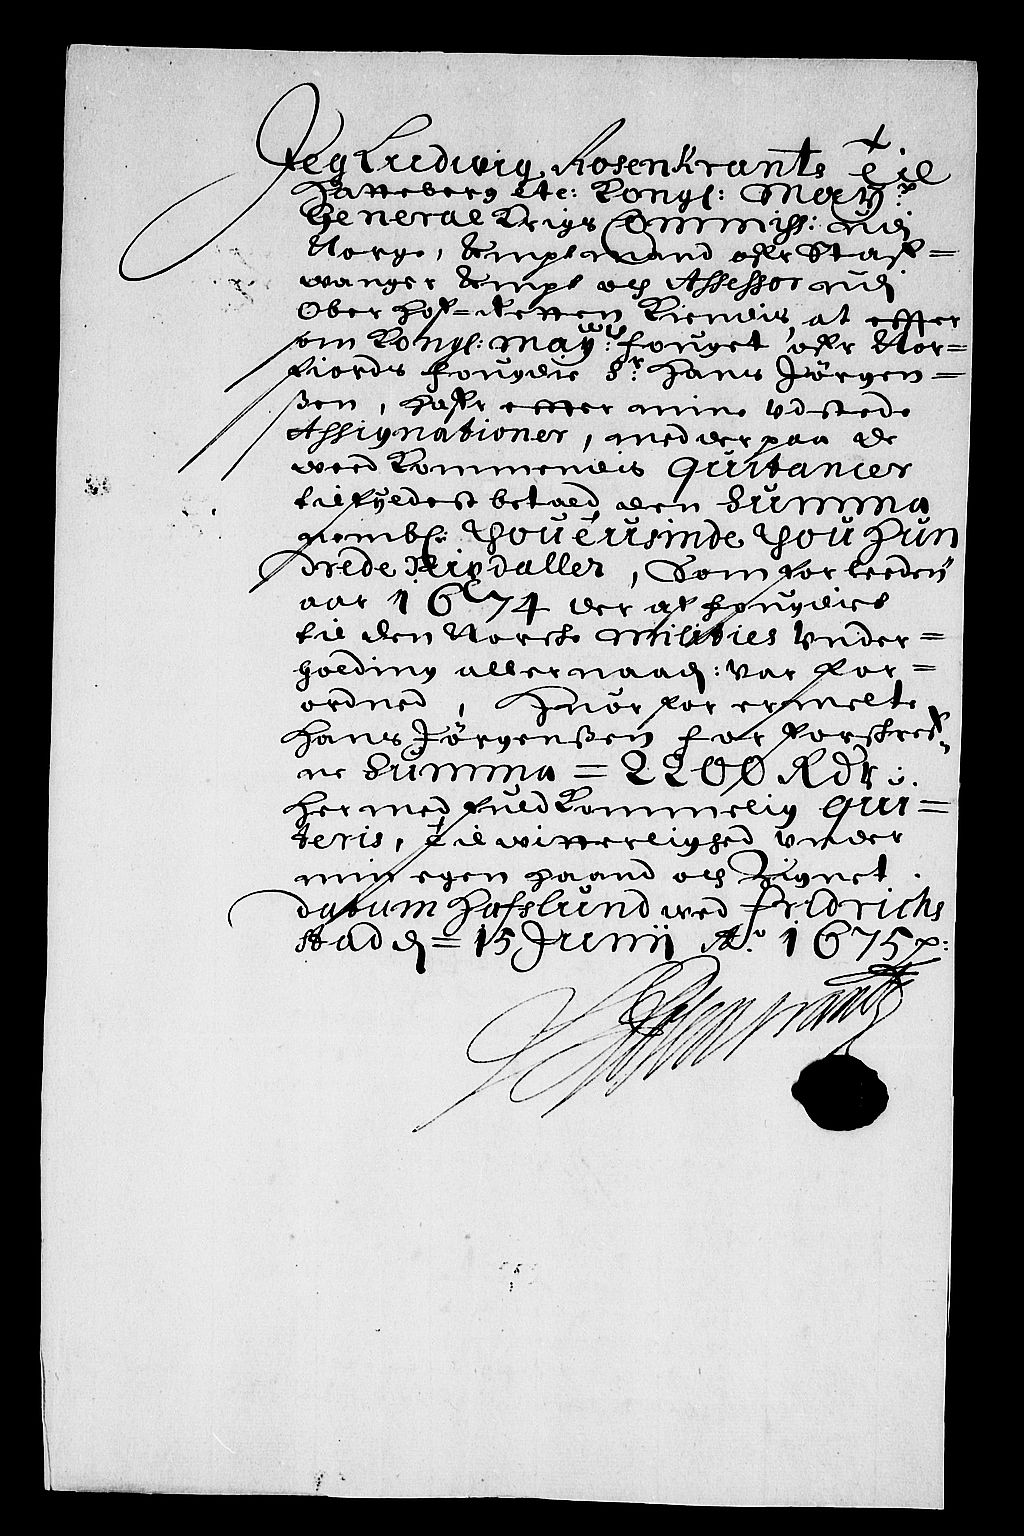 Jeg Ludwig Rosenkrants til
Hatteberg etc: Kongl: May:
General Krigs Commiss: udi
Norge, Amptmand ofr Staf=
wanger Ampt och Assessor udi
Ober Hof=Retten Kiendis, at effter
som Kongl: May: fouget ofr Nor=
fiords fougdie Sr. Hans Jørgen=
ßen, hafr effter mine Udstede
Assignationer, med der paa de
wed Kommendis Quitancier
tilfyldest betald den Summa
nembl: Thou tusinde Thou Hun
drede Rixdaller, Som for leeden
aar 1674 der af fougdiet
til den Norske milities Under=
holding allernaad: var for=
ordned, Huor for ermelte
Hans Jørgenßen for forskref=
ne Summa = 2200 Rdr
her med fuldkommelig Qui=
teris, til witterlighed under
min egen Haand och Zignet.
datum Hafslund wed Fridrichs
stad d= 15 Junii Ao. 1675
L Rosenkrantz